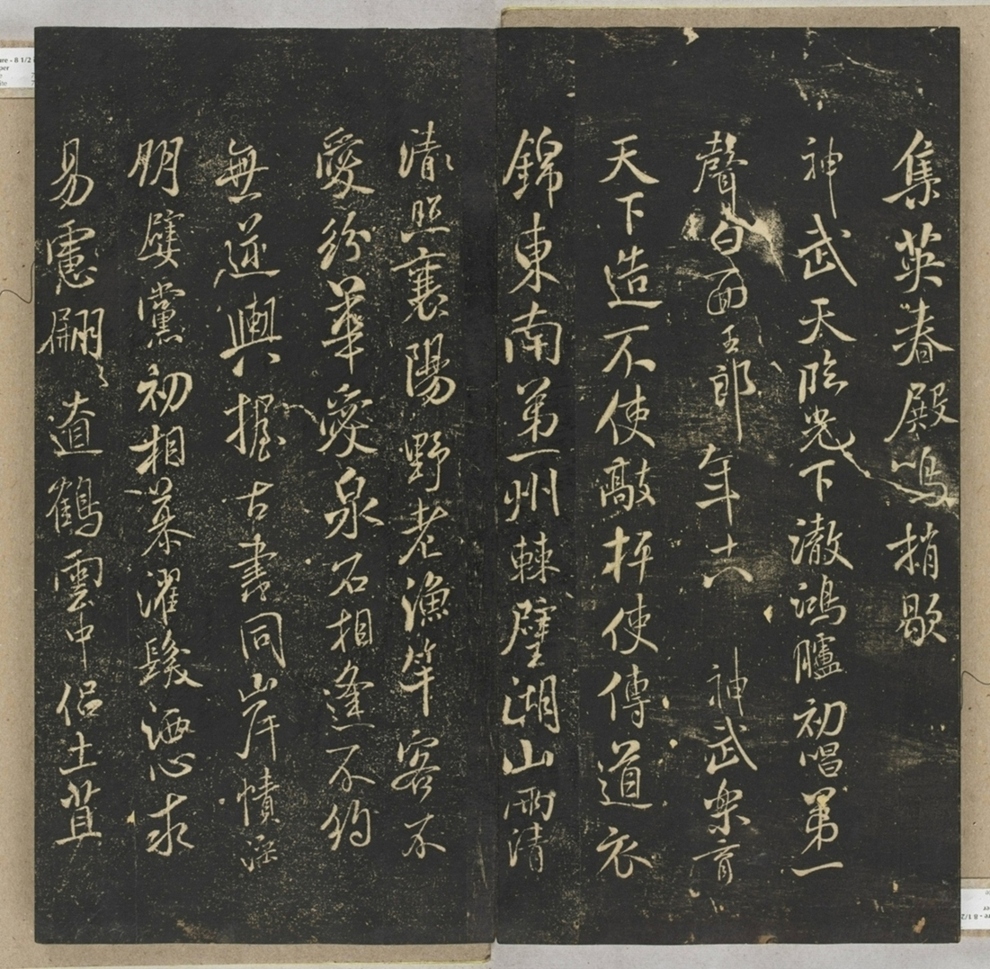 集英春殿鳴梢歇
神武天臨光下澈鴻臚初唱第一
聲白面王郎年十八 神武樂育
天下造不使敲枰使傳道衣
錦東南第一州棘璧湖山兩清
清照襄陽野老漁竿客不
愛紛華愛泉石相逢不約
無逆輿握古書同岸幘淫
朋嬖黨初相慕濯髮洒心求
易慮翩〻遼鶴雲中侶土苴